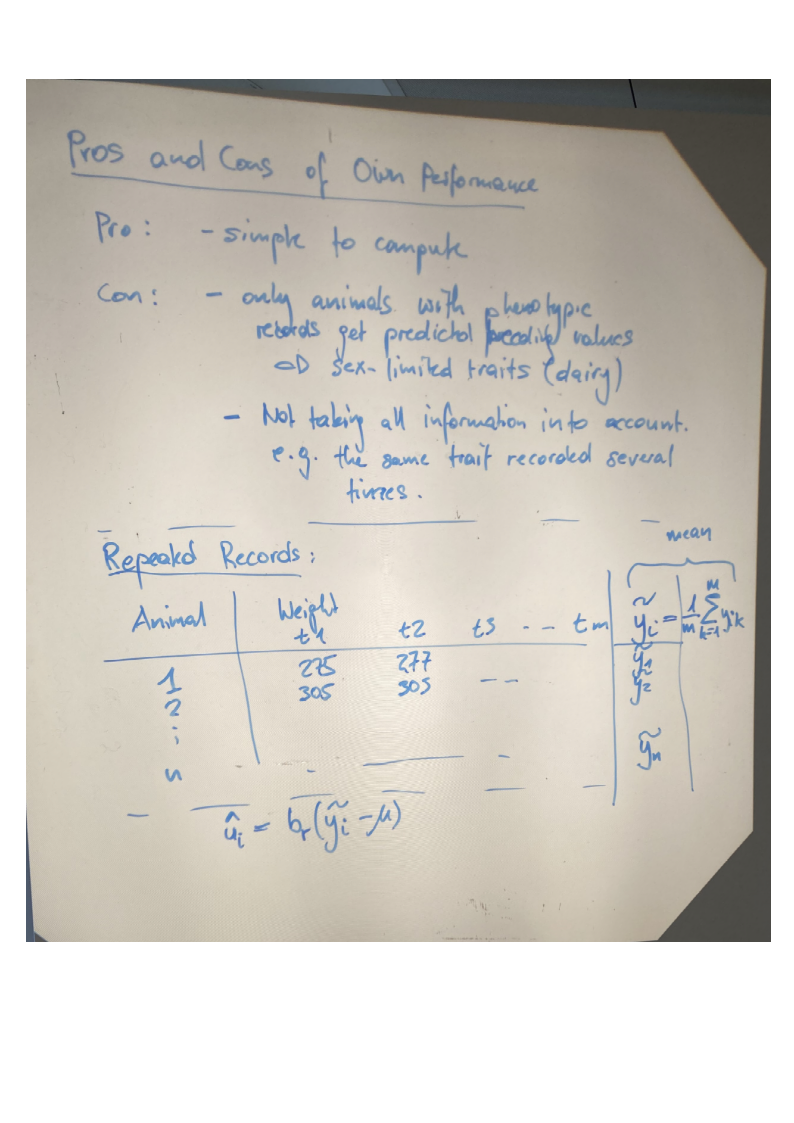 Pros and Cons of Own Performance
Pro: - simple to compute
Con: - only animals with phenotypic
records get predicted breeding values
⇒ sex-limited traits (dairy)
- Not taking all information into account.
e.g. the same trait recorded several
times.
mean
Repeated Records:
Animal Weight
t1 t2 t3 -- tm ỹi = 1/m Σ k=1 m yik
1 275 277 ỹ1
2 305 305 -- ỹ2
:
n ỹn
ûi = br(ỹi - μ)